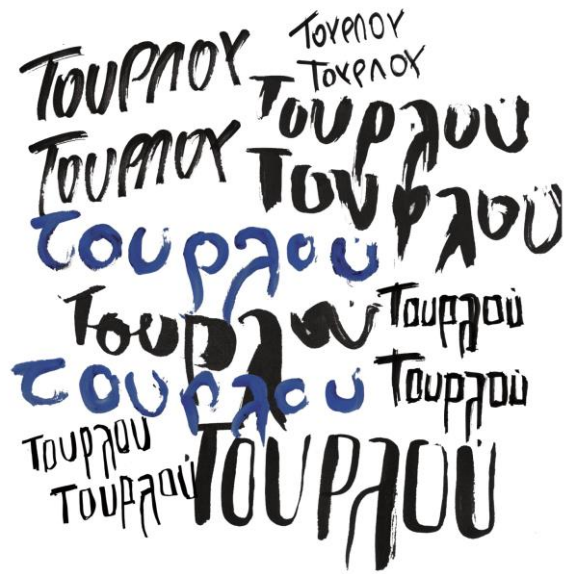 ΤΟΥΡΛΟΥ
ΤΟΥΡΛΟΥ
ΤΟΥΡΛΟΥ
Τουρλού
ΤΟΥΡΛΟΥ
Τουρλού
τουρλού
Τουρλού
Τουρλού
τουρλού
Τουρλού
Τουρλού
Τουρλού
Τουρλού